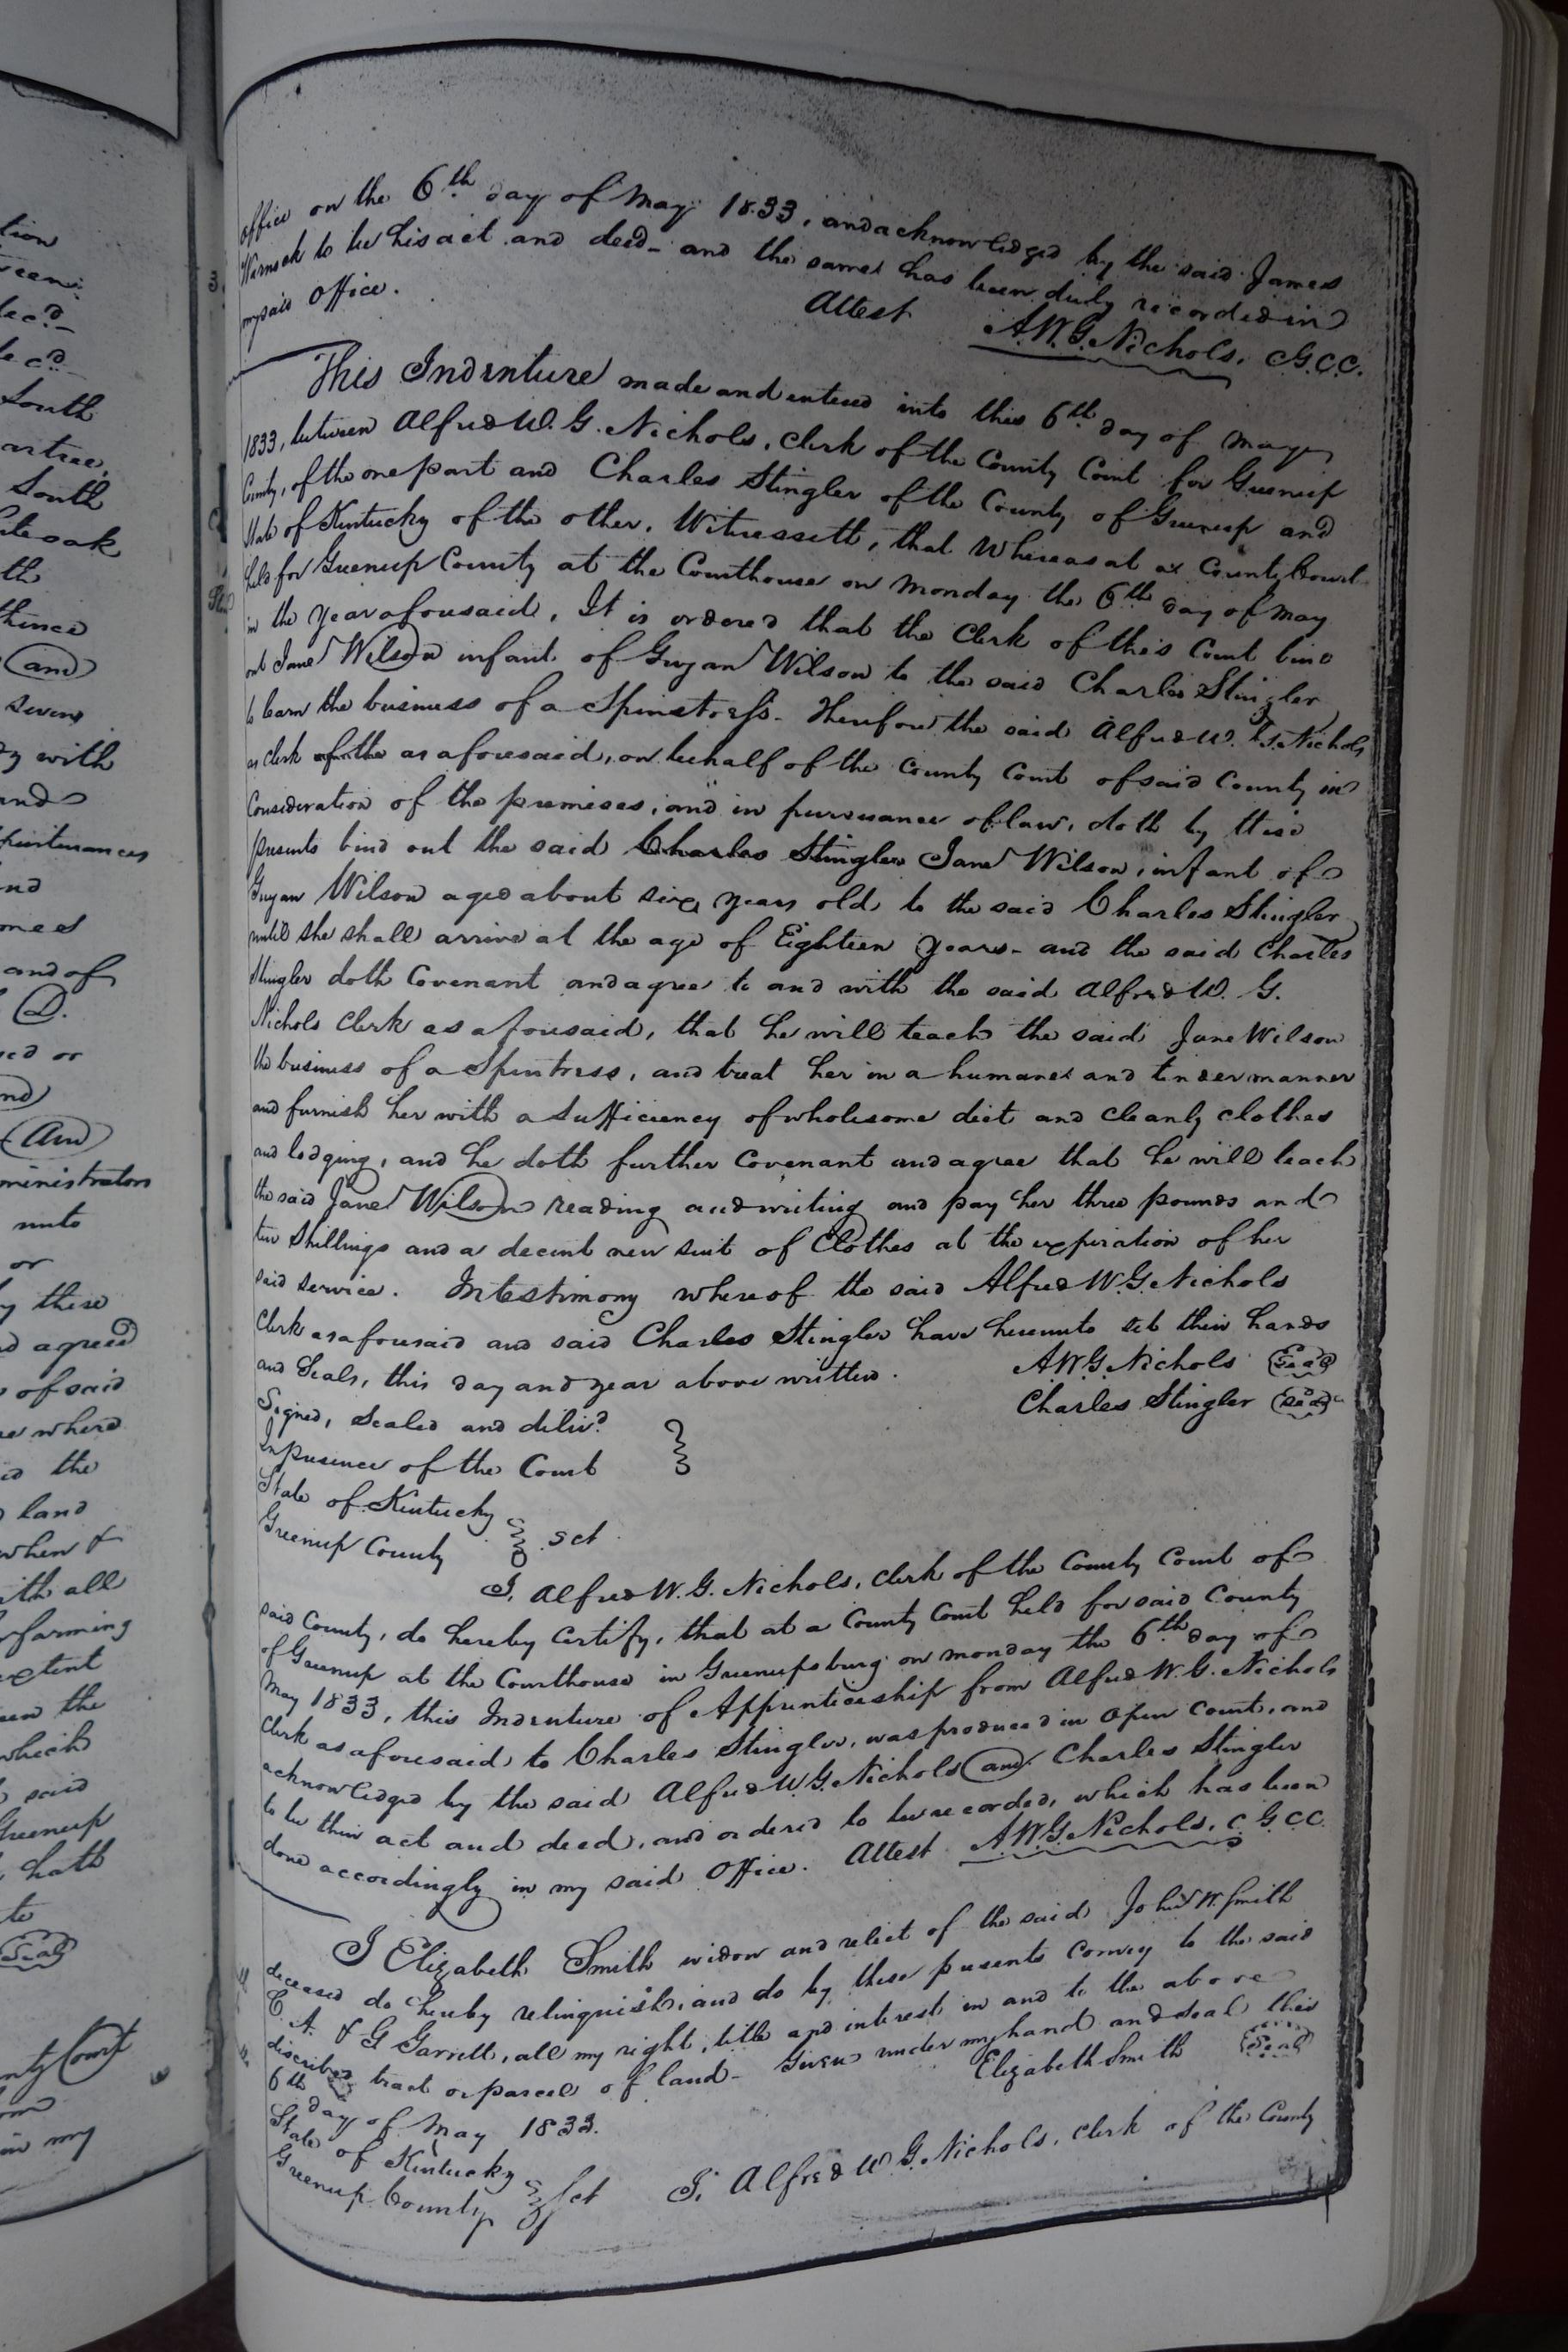 tion
south
artree,
South
iteoak
th
thence
and
seven
with
and
purtenances
nd
and of
D.
ed or
nd
And
ministrators
unto
or
by these
agreed
of said
where
the
land
when &
ith all
farming
extent
the
which
said
Greenup
hath
to
Seal
nty Court
in my
office on the 6th day of May 1833, and acknowledged by the said James
Warnock to be his act and deed - and the same has been duly recorded in
my said Office.
Attest A.W.G. Nichols, C.G.C.C.
This Indenture made and entered into this 6th day of May
1833, between Alfred W. G. Nichols, Clerk of the County Court for Greenup
County, of the one part and Charles Stingler of the County of Greenup and
State of Kentucky of the other, Witnesseth, that Whereas at a County Court
held for Greenup County at the Courthouse on Monday the 6th day of May
in the year aforesaid, It is ordered that the Clerk of this Court bind
out Jane Wilson infant of Guyan Wilson to the said Charles Stingler
to learn the business of a Spinstress - Therefore the said Alfred W. G. Nichols
as clerk of the as aforesaid, on behalf of the County Court of said County in
Consideration of the premises, and in pursuance of law, doth by these
presents bind out the said Charles Stingler Jane Wilson, infant of
Guyan Wilson aged about six years old to the said Charles Stingler
until she shall arrive at the age of Eighteen years - and the said Charles
Stingler doth Covenant and agree to and with the said Alfred W. G.
Nichols Clerk as aforesaid, that he will teach the said Jane Wilson
the business of a Spintress, and treat her in a humane and tender manner
and furnish her with a sufficiency of wholesome diet and cleanly clothes
and lodging, and he doth further Covenant and agree that he will teach
the said Jane Wilson reading and writing and pay her three pounds and
ten Shillings and a decent new suit of Clothes at the expiration of her
said service. In testimony whereof the said Alfred W. G. Nichols
Clerk as aforesaid and said Charles Stingler have hereunto set their hands
and Seals, this day and year above written. A.W.G. Nichols Seal
Charles Stingler Seal
Signed, Sealed and deliv.d
In presence of the Court
State of Kentucky
Greenup County sct
I, Alfred W. G. Nichols, Clerk of the County Court of
said County, do hereby Certify, that at a County Court held for said County
of Greenup at the Courthouse in Greenupsburg on Monday the 6th day of
May 1833, this Indenture of Apprenticeship from Alfred W. G. Nichols
Clerk as aforesaid to Charles Stingler, was produced in Open Court, and
acknowledged by the said Alfred W. G. Nichols and Charles Stingler
to be their act and deed, and ordered to be recorded, which has been
done accordingly in my said Office. Attest A.W.G. Nichols, C.G.C.C.
I Elizabeth Smith widow and relict of the said John W. Smith
deceased do hereby relinquish, and do by these presents Convey to the said
C. A. & G Garrett, all my right, title and interest in and to the above
described tract or parcel of land - Given under my hand and seal this
6th day of May 1833. Elizabeth Smith Seal
State of Kentucky
Greenup County Sct I, Alfred W. G. Nichols, Clerk of the County